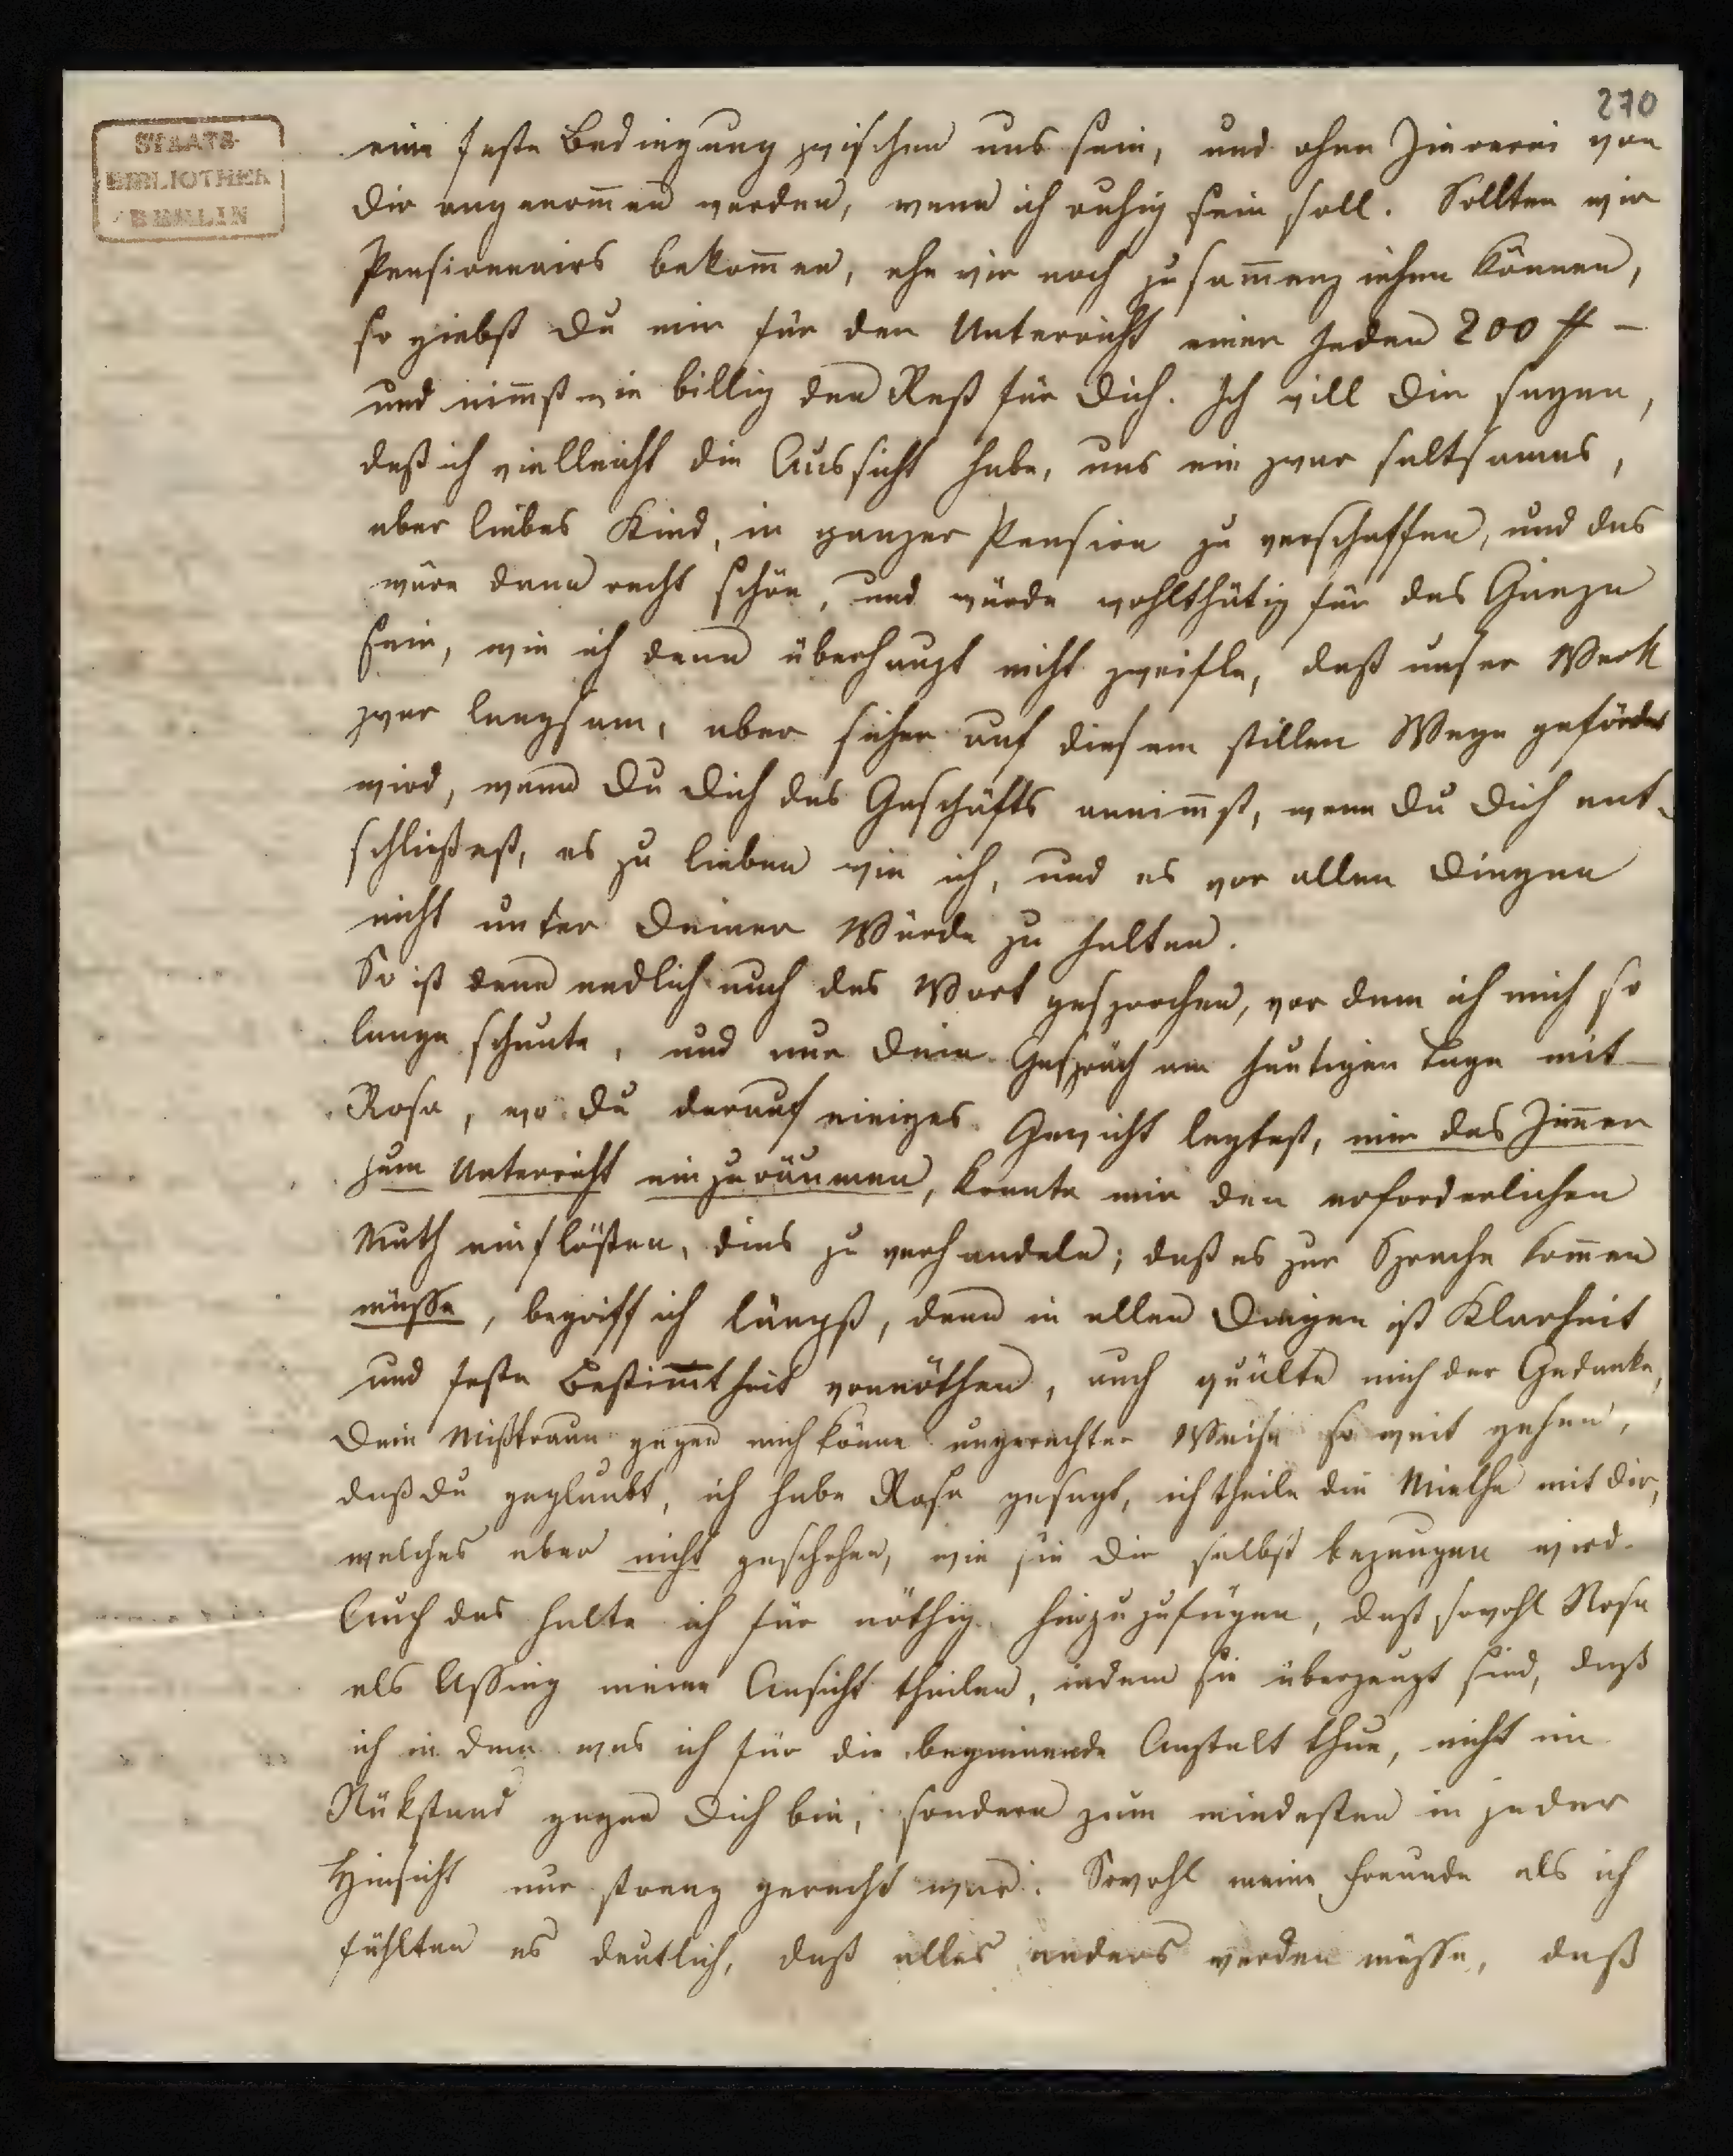 270
STAATS-
BIBLIOTHEK
BERLIN
eine feste Bedingung zwischen uns sein, und ohne Ziererei von
Dir angenom̅en werden, wenn ich ruhig sein soll. Sollten wir
Pensionnairs bekom̅en, ehe wir noch zusam̅enziehen können,
so giebst Du mir für den Unterricht einer Jeden 200 ₰ –
und nim̅st wie billig den Rest für Dich. Ich will Dir sagen,
daß ich vielleicht die Aussicht habe, uns ein zwar seltsames,
aber liebes Kind, in ganzer Pension zu verschaffen, und das
wäre dann recht schön, und würde wohlthätig für das Ganze
sein, wie ich denn überhaupt nicht zweifle, daß unser Werk
zwar langsam, aber sicher auf diesem stillen Wege gefördert
wird, wenn Du Dich des Geschäfts annim̅st, wenn Du Dich ent-
schließest, es zu lieben wie ich, und es vor allen Dingen
nicht unter Deiner Würde zu halten.
So ist denn endlich auch das Wort gesprochen, vor dem ich mich so
lange scheute, und nur Dein Gespräch am heutigen Tage mit
Rosa, wo Du darauf einiges Gewicht legtest, mir das Zim̅er
zum Unterricht einzuräumen, konnte mir den erforderlichen
Muth einflößen, dies zu verhandeln; daß es zur Sprache kom̅en
müsse, begriff ich längst, denn in allen Dingen ist Klarheit
und feste Bestim̅theit vonnöthen, auch quälte mich der Gedanke,
Dein Mißtraun gegen mich könne ungerechter Weise so weit gehen,
daß Du geglaubt, ich habe Rosa gesagt, ich theile die Miethe mit Dir,
welches aber nicht geschehen, wie sie Dir selbst bezeugen wird.
Auch das halte ich für nöthig hinzuzufügen, daß sowohl Rosa
als Assing meine Ansicht theilen, indem sie überzeugt sind, daß
ich in dem was ich für die beginnende Anstalt thue, nicht im
Rükstand gegen Dich bin, sondern zum mindesten in jeder
Hinsicht nur streng gerecht war. Sowohl meine Freunde als ich
fühlten es deutlich, daß alles anders werden müsse, daß